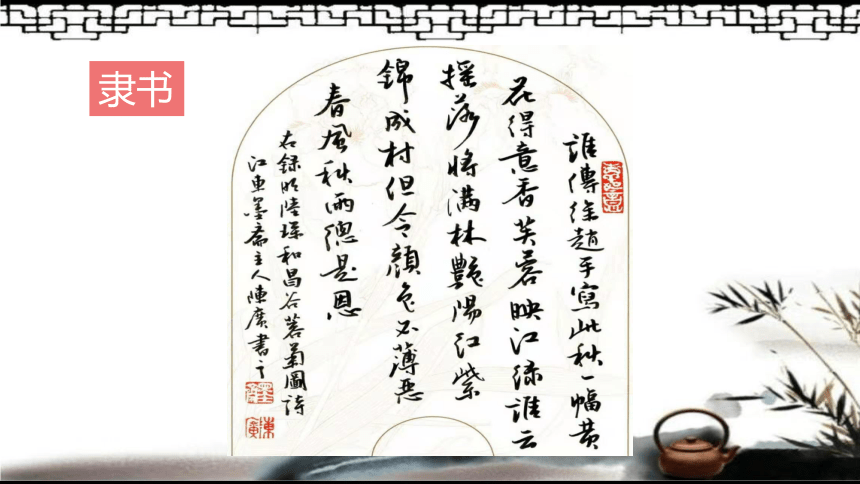 隶书
誰傳徐趙手寫此秋一幅黄
花得意香芙蓉映江綠誰云
摇落將满林艷陽红紫
錦成村但令顔色不薄惡
春風秋雨總是恩
右録明陸深和昌谷蓉菊圖詩
江東墨斋主人陳廣書之